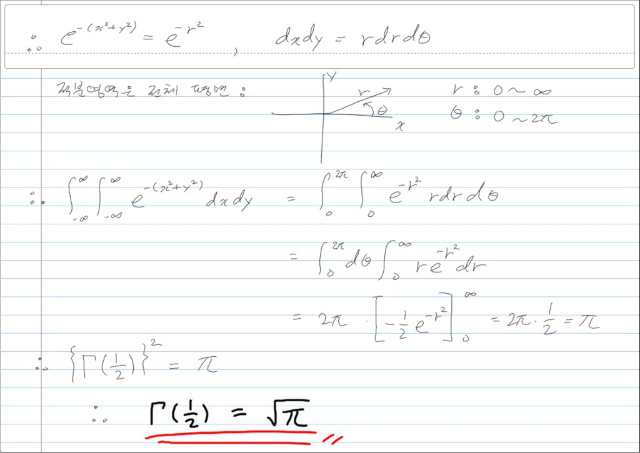 ∴ e^{-(x²+y²)} = e^{-r²}, dxdy = rdrdθ
적분영역은 전체 평면 : Y r θ x r : 0 ~ ∞
θ : 0 ~ 2π
∴ ∫_{-∞}^{∞} ∫_{-∞}^{∞} e^{-(x²+y²)} dxdy = ∫_0^{2π} ∫_0^{∞} e^{-r²} rdrdθ
= ∫_0^{2π} dθ ∫_0^{∞} re^{-r²} dr
= 2π · [-1/2 e^{-r²}]_0^{∞} = 2π · 1/2 = π
∴ {Γ(1/2)}² = π
∴ Γ(1/2) = √π